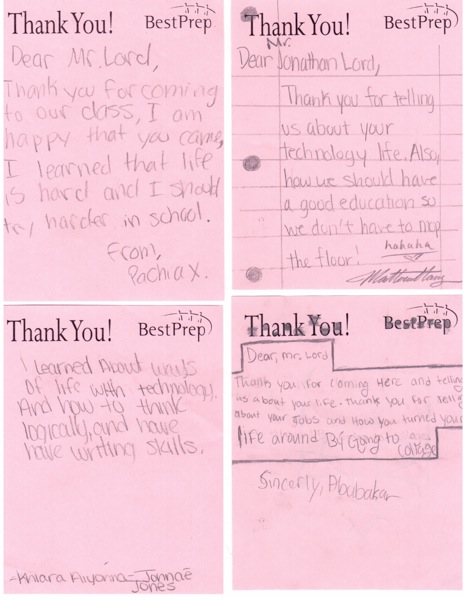 Thank You! BestPrep
Dear Mr. Lord,
Thank you for coming
to our class, I am
happy that you came,
I learned that life
is hard and I should
try harder in school.
From,
Pachia X.
Thank You! BestPrep
Dear Mr. Jonathan Lord,
Thank you for telling
us about your
technology life. Also,
how we should have
a good education so
we don't have to mop
the floor! hahaha
Thank You! BestPrep
I learned About ways
Of life with technology.
And how to think
logically, and have
have writing skills.
Jonnaé
Jones
Thank You! BestPrep
Dear, mr. Lord
Thank you for coming Here and telling
us about your life. thank you for telling
about your Jobs and How you turned your
life around By Going to
College
Sincerly, Abubakar